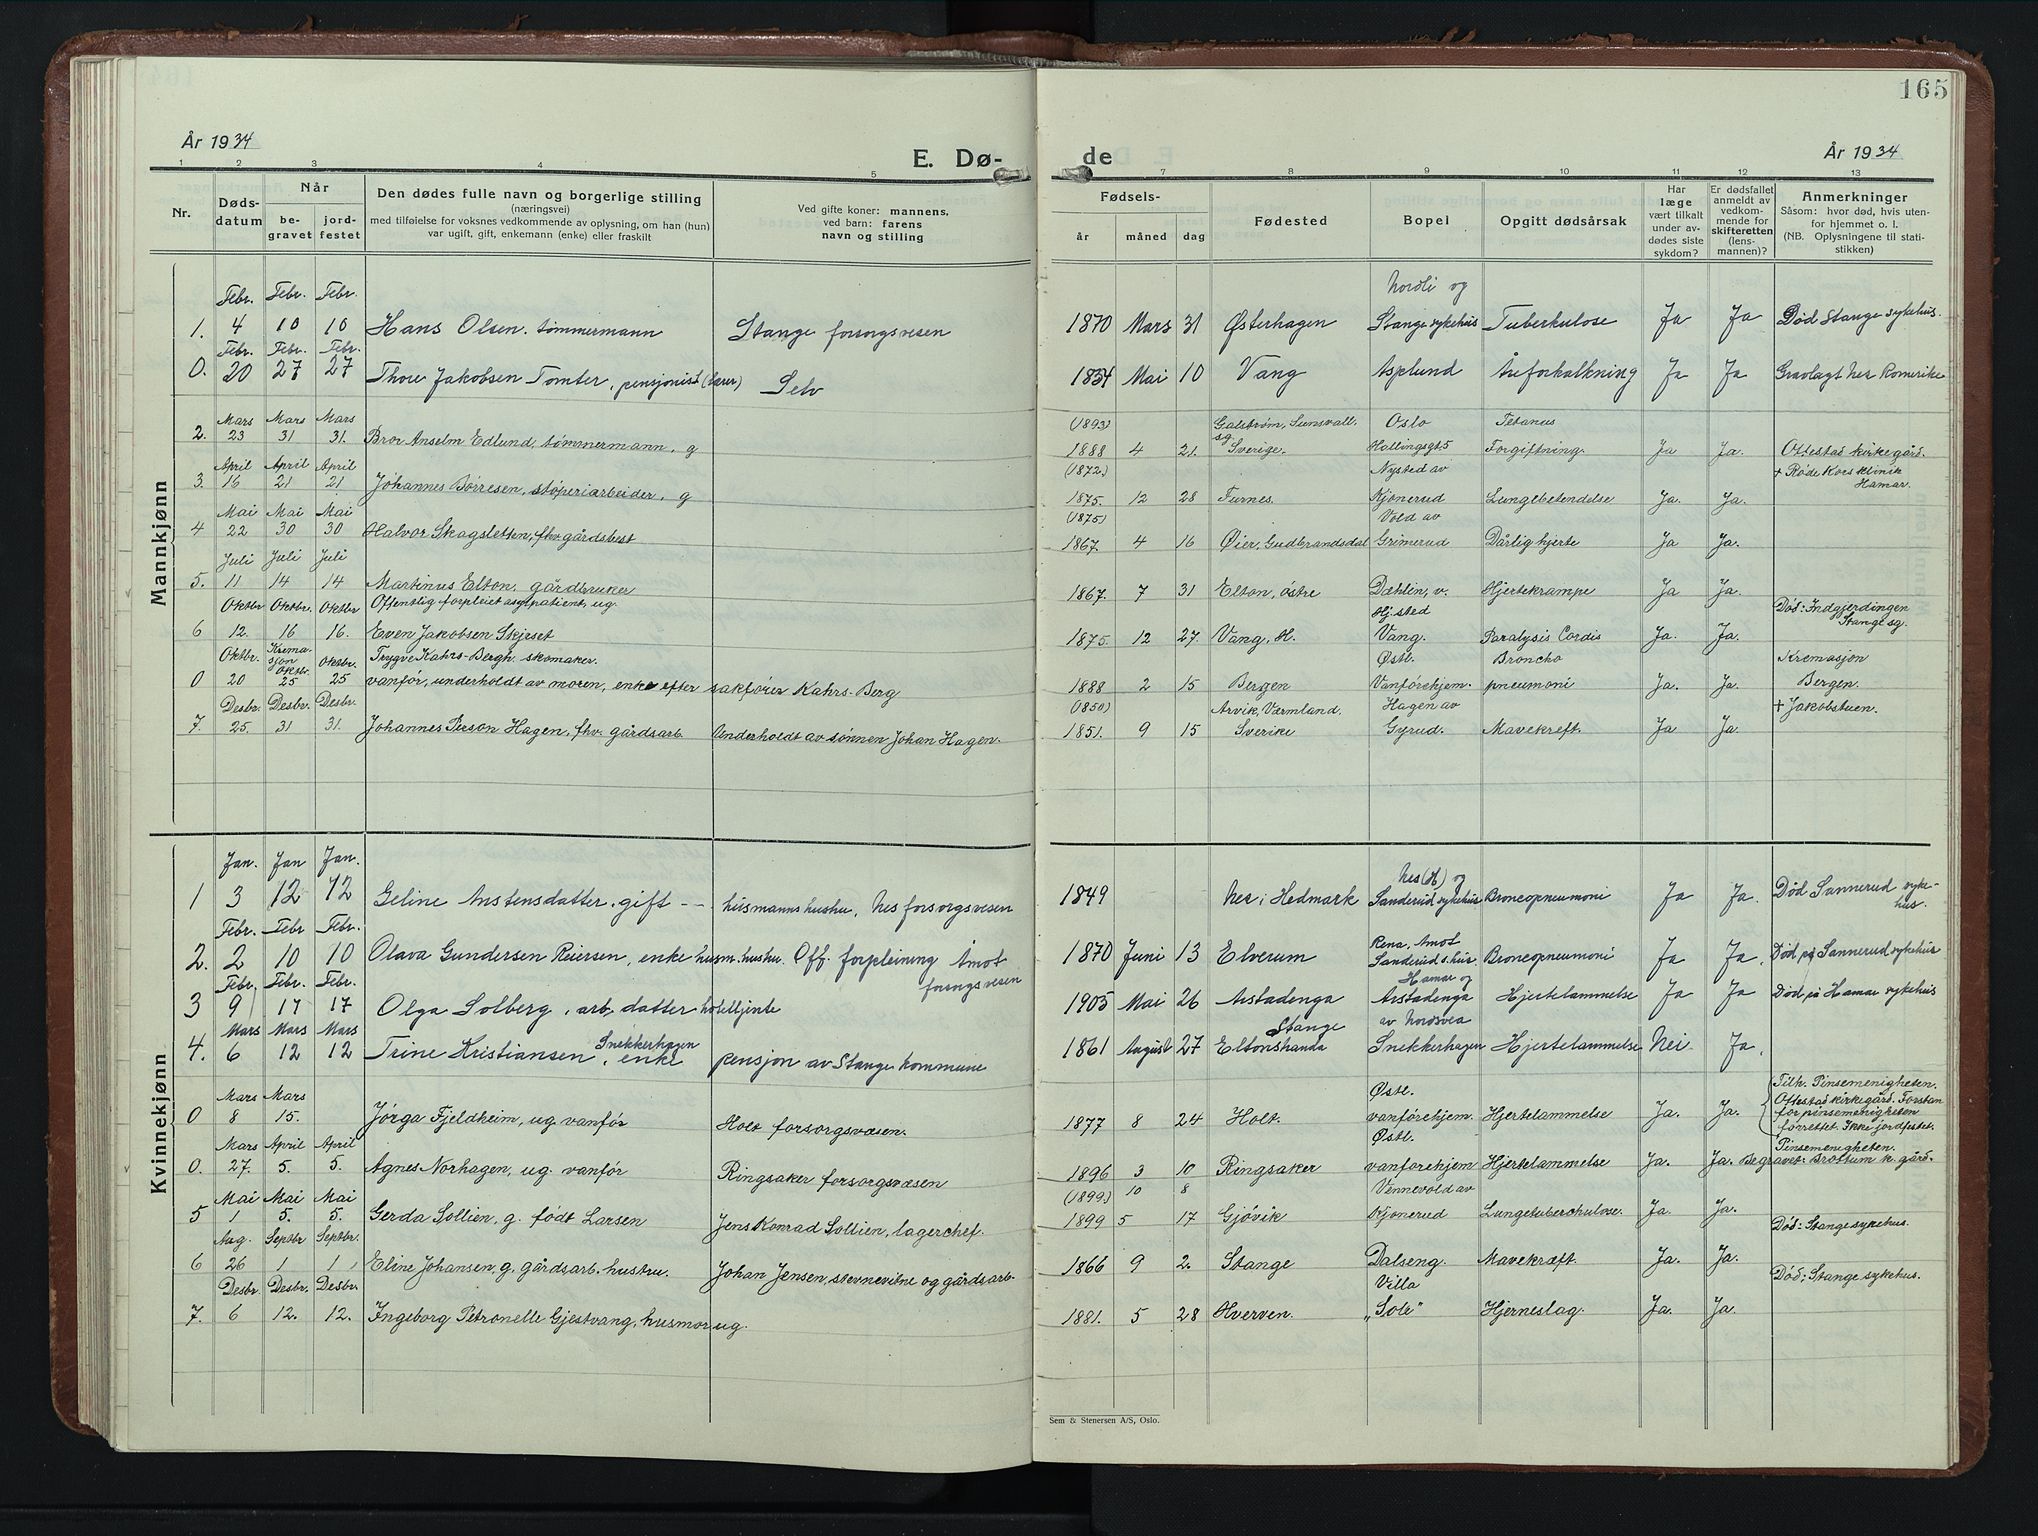 165
År 1934
E. Dø-
de
År 1934
1 2 3 4 5 7 8 9 10 11 12 13
Nr.
Døds-
datum
Når
be-
gravet
jord-
festet
Den dødes fulle navn og borgerlige stilling
(næringsvei)
med tilføielse for voksnes vedkommende av oplysning, om han (hun)
var ugift, gift, enkemann (enke) eller fraskilt
Ved gifte koner: mannens,
ved barn: farens
navn og stilling
Fødsels-
år måned dag
Fødested
Bopel
Opgitt dødsårsak
Har
læge
vært tilkalt
under av-
dødes siste
sykdom?
Er dødsfallet
anmeldt av
vedkom-
mende for
skifteretten
(lens-
mannen)?
Anmerkninger
Såsom: hvor død, hvis uten-
for hjemmet o. l.
(NB. Oplysningene til stati-
stikken)
Mannkjønn
Febr. Febr. Febr. Nordli og
1. 4 10 10 Hans Olsen, tømmermann Stange forsorgsvesen 1870 Mars 31 Østerhagen Stange sykehus Tuberkulose Ja Ja Død Stange sykehus.
Febr. Febr. Febr.
0. 20 27 27 Thore Jakobsen Tomter, pensjonist (lærer) Selv 1834 Mai 10 Vang Asplund Åreforkalkning Ja Ja Gravlagt Nes Romerike
Mars Mars Mars (1893) Galstrøm, Sunsvall. Oslo Tetanus
2. 23 31 31. Bror Anselm Edlund, tømmermann, g 1888 4 21. sg. Sverige. Hallingsgt 5 Forgiftning. Ja Ja. Ottestad kirkegård.
April April April (1872) Nysted av + Røde Kors klinik
3. 16 21 21 Johannes Børresen, støperiarbeider, g 1875. 12 28 Furnes. Kjonerud Lungebetendelse Ja. Ja. Hamar.
Mai Mai Mai (1875) Vold av
4 22 30 30 Halvor Skagsletten, fhv. gårdsbest 1867. 4 16 Øier, Gudbrandsdal Grimerud Dårlig hjerte Ja Ja.
Juli Juli Juli
5. 11 14 14 Martinus Elton, gårdbruker 1867. 7 31 Elton, østre Dæhlin, v. Hjertekrampe Ja Ja
Oktbr Oktbr. Oktbr Offentlig forpleiet asylpatient, ug. Hj. sted Død: Indgjerdingen
6 12. 16 16. Even Jakobsen Skjerset 1875. 12 27. Vang, H. Vang. Paralysis Cordis Ja. Ja. Stange sg.
Oktbr. Krema-sjon Oktbr. Oktbr. Trygve Kahrs-Bergh. skomaker. Østl. Broncho Kremasjon
0 20 25 25 vanfør, underholdt av moren, enke efter sakfører Kahrs-Berg 1888 2 15 Bergen Vanførehjem. pneumoni Ja. Ja. Bergen.
Desbr. Desbr. Desbr. (1850) Arvik, Værmland. Hagen av + Jakobstuen.
7. 25. 31 31. Johannes Person Hagen, fhv. gårdsarb. Underholdt av sønnen Johan Hagen. 1851. 9 15 Sverike Gyrud. Mavekreft. Ja Ja.
Kvinnekjønn
Jan. Jan Jan. Nes (H) og
1 3 12 12 Geline Anstensdatter, gift -- husmanns hustru, Nes forsorgsvesen 1849 Nes i Hedmark Sanderud sykehus Broncopneumoni Ja Ja. Død Sannerud syke-
hus.
Febr. Febr Febr. Rena, Åmot
2. 2 10 10 Olava Gundersen Reiersen, enke husm. hustru. Off. forpleining Åmot 1870 Juni 13 Elverum Sanderud s.hus Broncopneumoni Ja Ja. Død på Sannerud sykehus
forsorgsvesen
Febr. Febr. Febr. Hamar og
3 9 17 17 Olga Solberg, arb. datter hotelljente 1905 Mai 26 Arstadenga Arstadenga Hjertelammelse Ja Ja Død på Hamar sykehus
Mars Mars Mars Snekkerhagen Stange av Nordsvea
4. 6 12 12 Trine Kristiansen, enke pensjon av Stange kommune 1861 August 27 Eltonstranda Snekkerhagen Hjertelammelse Nei. Ja.
Mars Mars Østl. Tilh. Pinsemenigheten.
0 8 15. Jørga Fjeldheim, ug. vanfør Holt forsorgsvæsen. 1877 8 24 Holt. vanførehjem. Hjertelammelse Ja. Ja. Ottestad kirkegård. Forstan
for pinsemenigheten
forrettet. Ikke jordfestet.
Mars April April Østl. Pinsemenigheten.
0. 27. 5. 5. Agnes Norhagen, ug. vanfør Ringsaker forsorgsvæsen 1896 3 10 Ringsaker vanførehjem Hjertelammelse Ja. Ja. Begravet: Brøttum k. gård.
Mai Mai Mai (1899.) 10 8 Vennevold av
5 1 5. 5. Gerda Sollien, g. født Larsen Jens Konrad Sollien, lagerchef. 1899 5 17 Gjøvik Kjonerud Lungetuberchulose. Ja. Ja. Død: Stange sykehus.
Aug. Septbr Septbr.
6 26 1 1 Eline Johansen, g. gårdsarb. hustru. Johan Jensen, stevnevitne og gårdsarb. 1866 9 2. Stange Dalseng. Mavekræft. Ja. Ja. Død: Stange sykehus.
Desbr. Desbr. Desbr Villa
7. 6 12. 12. Ingeborg Petronelle Gjestvang, husmor ug. 1881. 5 28 Hverven. „Sole" Hjerneslag. Ja. Ja.
Sem & Stenersen A/S, Oslo.